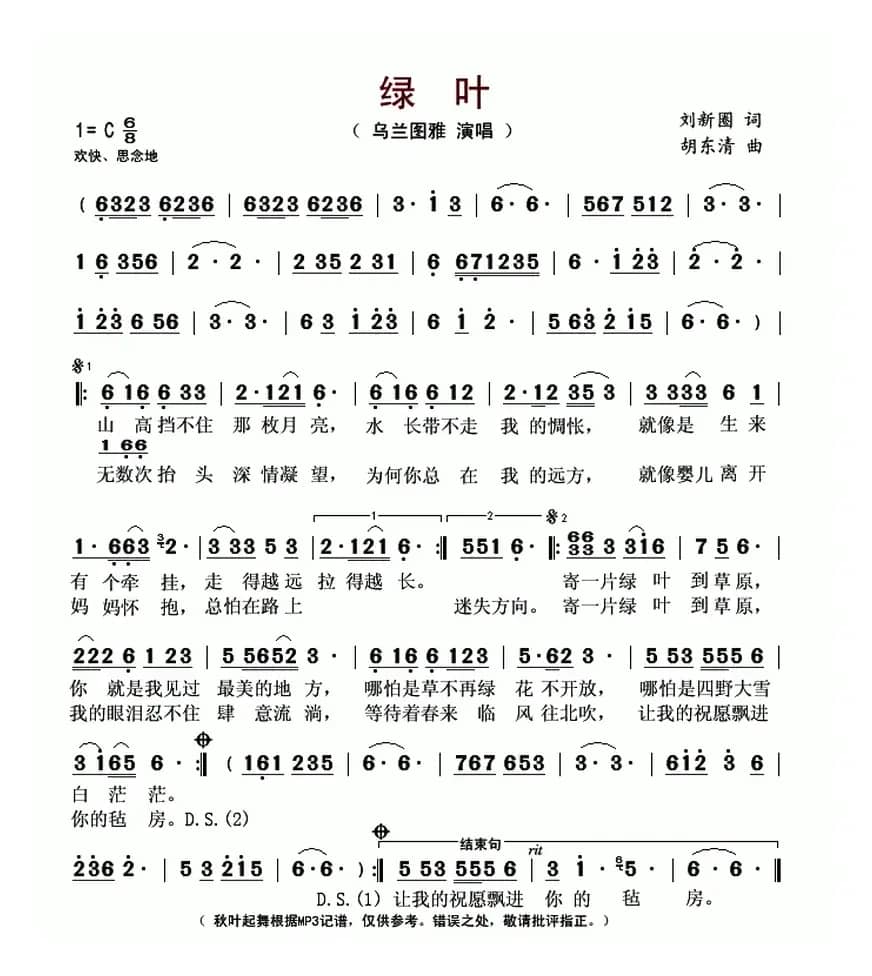 绿 叶
( 乌兰图雅 演唱 )
1= C 6/8
欢快、思念地
刘新圈 词
胡东清 曲
( 6323 6236 | 6323 6236 | 3· i 3 | 6· 6· | 567 512 | 3· 3· |
1 6 356 | 2 · 2 · | 2 35 2 31 | 6 671235 | 6 · 123 | 2 · 2 · |
123 6 56 | 3· 3· | 6 3 123 | 6 1 2 · | 5 63 2 15 | 6· 6· ) |
𝄋1
‖: 6 16 6 33 | 2·121 6· | 6 16 6 12 | 2·12 35 3 | 3 333 6 1 |
山 高挡不住 那 枚月 亮， 水 长带不走 我 的惆怅， 就像是 生 来
1 66
无数次抬 头 深 情凝 望， 为何你总 在 我 的远方， 就像婴儿 离 开
1 2 𝄋2
1· 663 2· | 3 33 5 3 | 2·121 6· :‖ 551 6· ‖: 6633 3 316 | 7 5 6· |
有 个牵 挂， 走 得越 远 拉 得越 长。 寄一片绿 叶 到 草原，
妈 妈怀 抱， 总怕在路 上 迷失方向。 寄一片绿 叶 到 草原，
222 6 1 23 | 5 5652 3 · | 6 16 6 123 | 5·62 3 · | 5 53 555 6 |
你 就是我见过 最美的地 方， 哪怕是草不再绿 花 不开放， 哪怕是四野大雪
我的眼泪忍不住 肆 意流 淌， 等待着春来 临 风 往北吹， 让我的祝愿飘进
3 165 6 · :‖ ( 161 235 | 6· 6· | 767 653 | 3· 3· | 612 3 6 |
白 茫 茫。
你的毡 房。D.S.(2)
结束句 rit
236 2· | 5 3 215 | 6·6· ) :‖ 5 53 555 6 | 3 1 · 5· | 6 · 6 · ‖
D.S.(1) 让我的祝愿飘进 你 的 毡 房。
( 秋叶起舞根据MP3记谱，仅供参考。错误之处，敬请批评指正。)